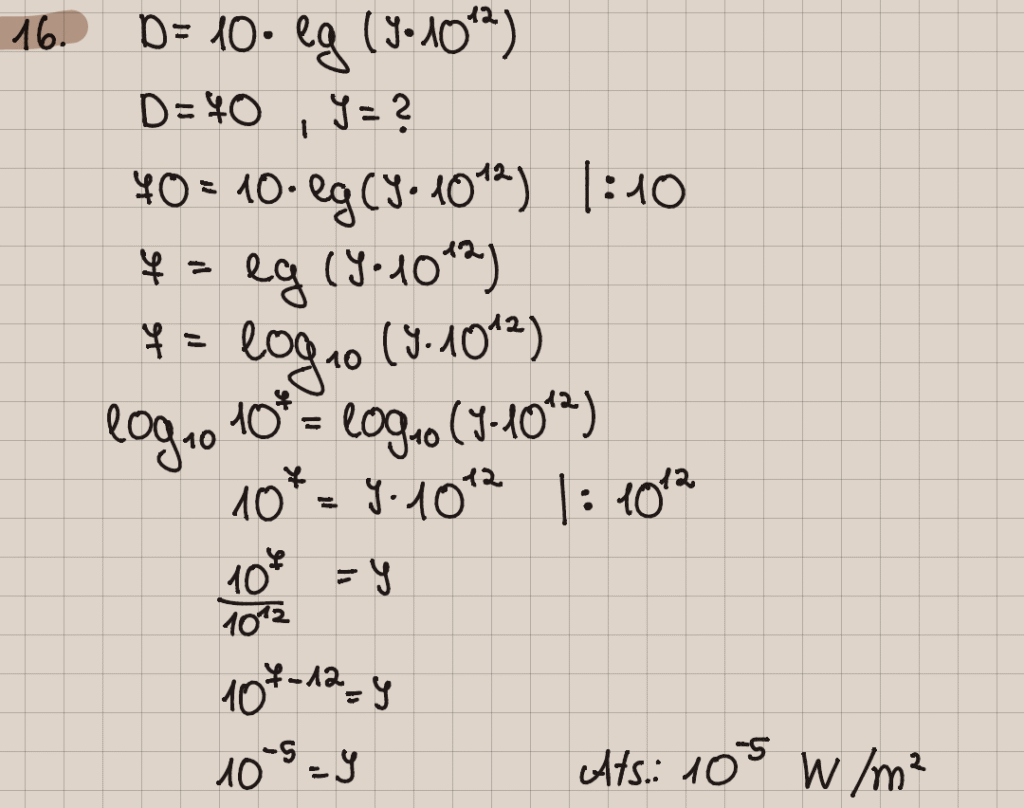 16. D = 10 · lg (y · 10¹²)
D = 70 , y = ?
70 = 10 · lg (y · 10¹²) | : 10
7 = lg (y · 10¹²)
7 = log₁₀ (y · 10¹²)
log₁₀ 10⁷ = log₁₀ (y · 10¹²)
10⁷ = y · 10¹² | : 10¹²
10⁷/10¹² = y
10⁷⁻¹² = y
10⁻⁵ = y Ats.: 10⁻⁵ W/m²